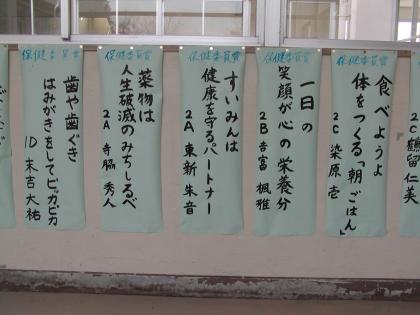 2C 鶴留 仁美
保健委員賞
食べようよ
体をつくる「朝ごはん」
2C 染原 壱
保健委員賞
一日の
笑顔が心の栄養分
2B 吉富 楓雅
保健委員賞
すいみんは
健康を守るパートナー
2A 東新 朱音
保健委員賞
薬物は
人生破滅のみちしるべ
2A 寺脇 秀人
保健委員賞
歯や歯ぐき
はみがきをしてピッカピカ
1D 末吉 大祐